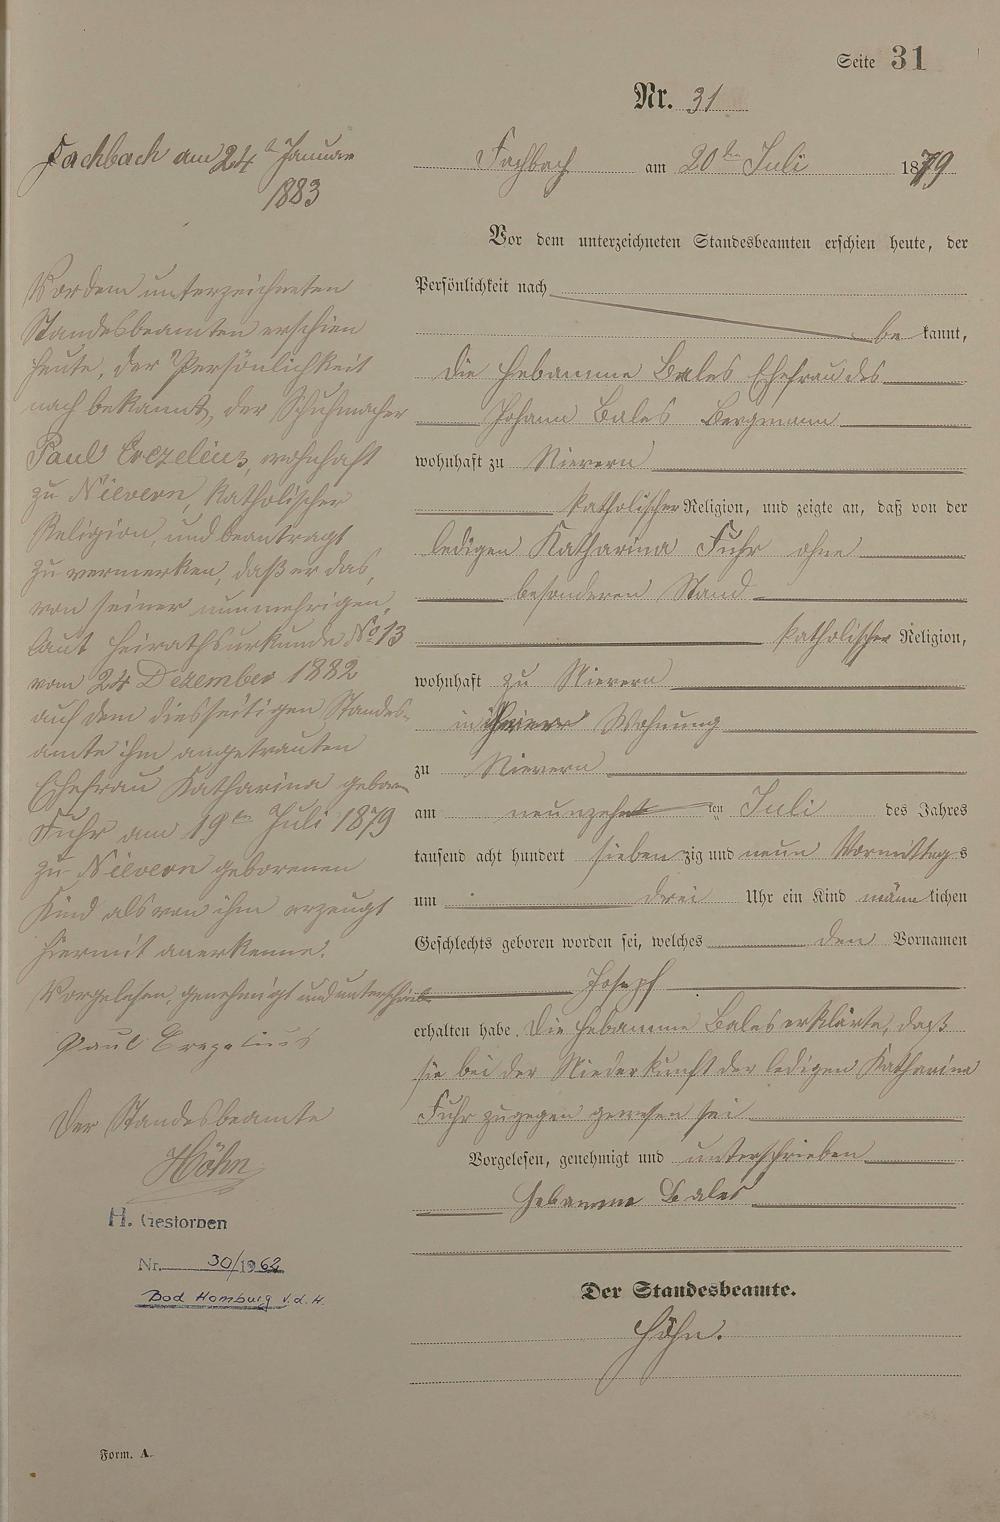 Seite 31
Nr. 31
Fachbach am 20ten Juli 1879
Vor dem unterzeichneten Standesbeamten erschien heute, der
Persönlichkeit nach
be kannt,
die Hebamme Bales Ehefrau des
Johann Bales Bergmann
wohnhaft zu Nievern
katholischer Religion, und zeigte an, daß von der
ledigen Katharina Fuhr ohne
besonderen Stand
katholischer Religion,
wohnhaft zu Nievern
in ihrer Wohnung
zu Nievern
am neunzehnten Juli des Jahres
tausend acht hundert siebenzig und neun Vormittags
um drei Uhr ein Kind männlichen
Geschlechts geboren worden sei, welches den Vornamen
Joseph
erhalten habe. Die Hebamme Bales erklärte, daß
sie bei der Niederkunft der ledigen Katharina
Fuhr zugegen gewesen sei
Vorgelesen, genehmigt und unterschrieben
Hebamme Bales
Der Standesbeamte.
Höhn.
Fachbach am 24n Januar
1883
Vor dem unterzeichneten
Standesbeamten erschien
heute, der Persönlichkeit
nach bekannt, der Schuhmacher
Paul wohnhaft
zu Nievern, katholischer
Religion, und beantragt
zu vermerken, daß er das,
von seiner nunmehrigen,
laut Heirathsurkunde No 13
vom 24 Dezember 1882
auf dem diesseitigen Standes-
amte ihm angetrauten
Ehefrau Katharina geboren
Fuhr am 19ten Juli 1879
zu Nievern geborenen
Kind als von ihm erzeugt
hiermit anerkenne.
Vorgelesen, genehmigt und unterschrieben
Paul
Der Standesbeamte
Höhn
H. Gestorben
Nr. 30/1962
Bad Homburg v.d.H.
Form. A.